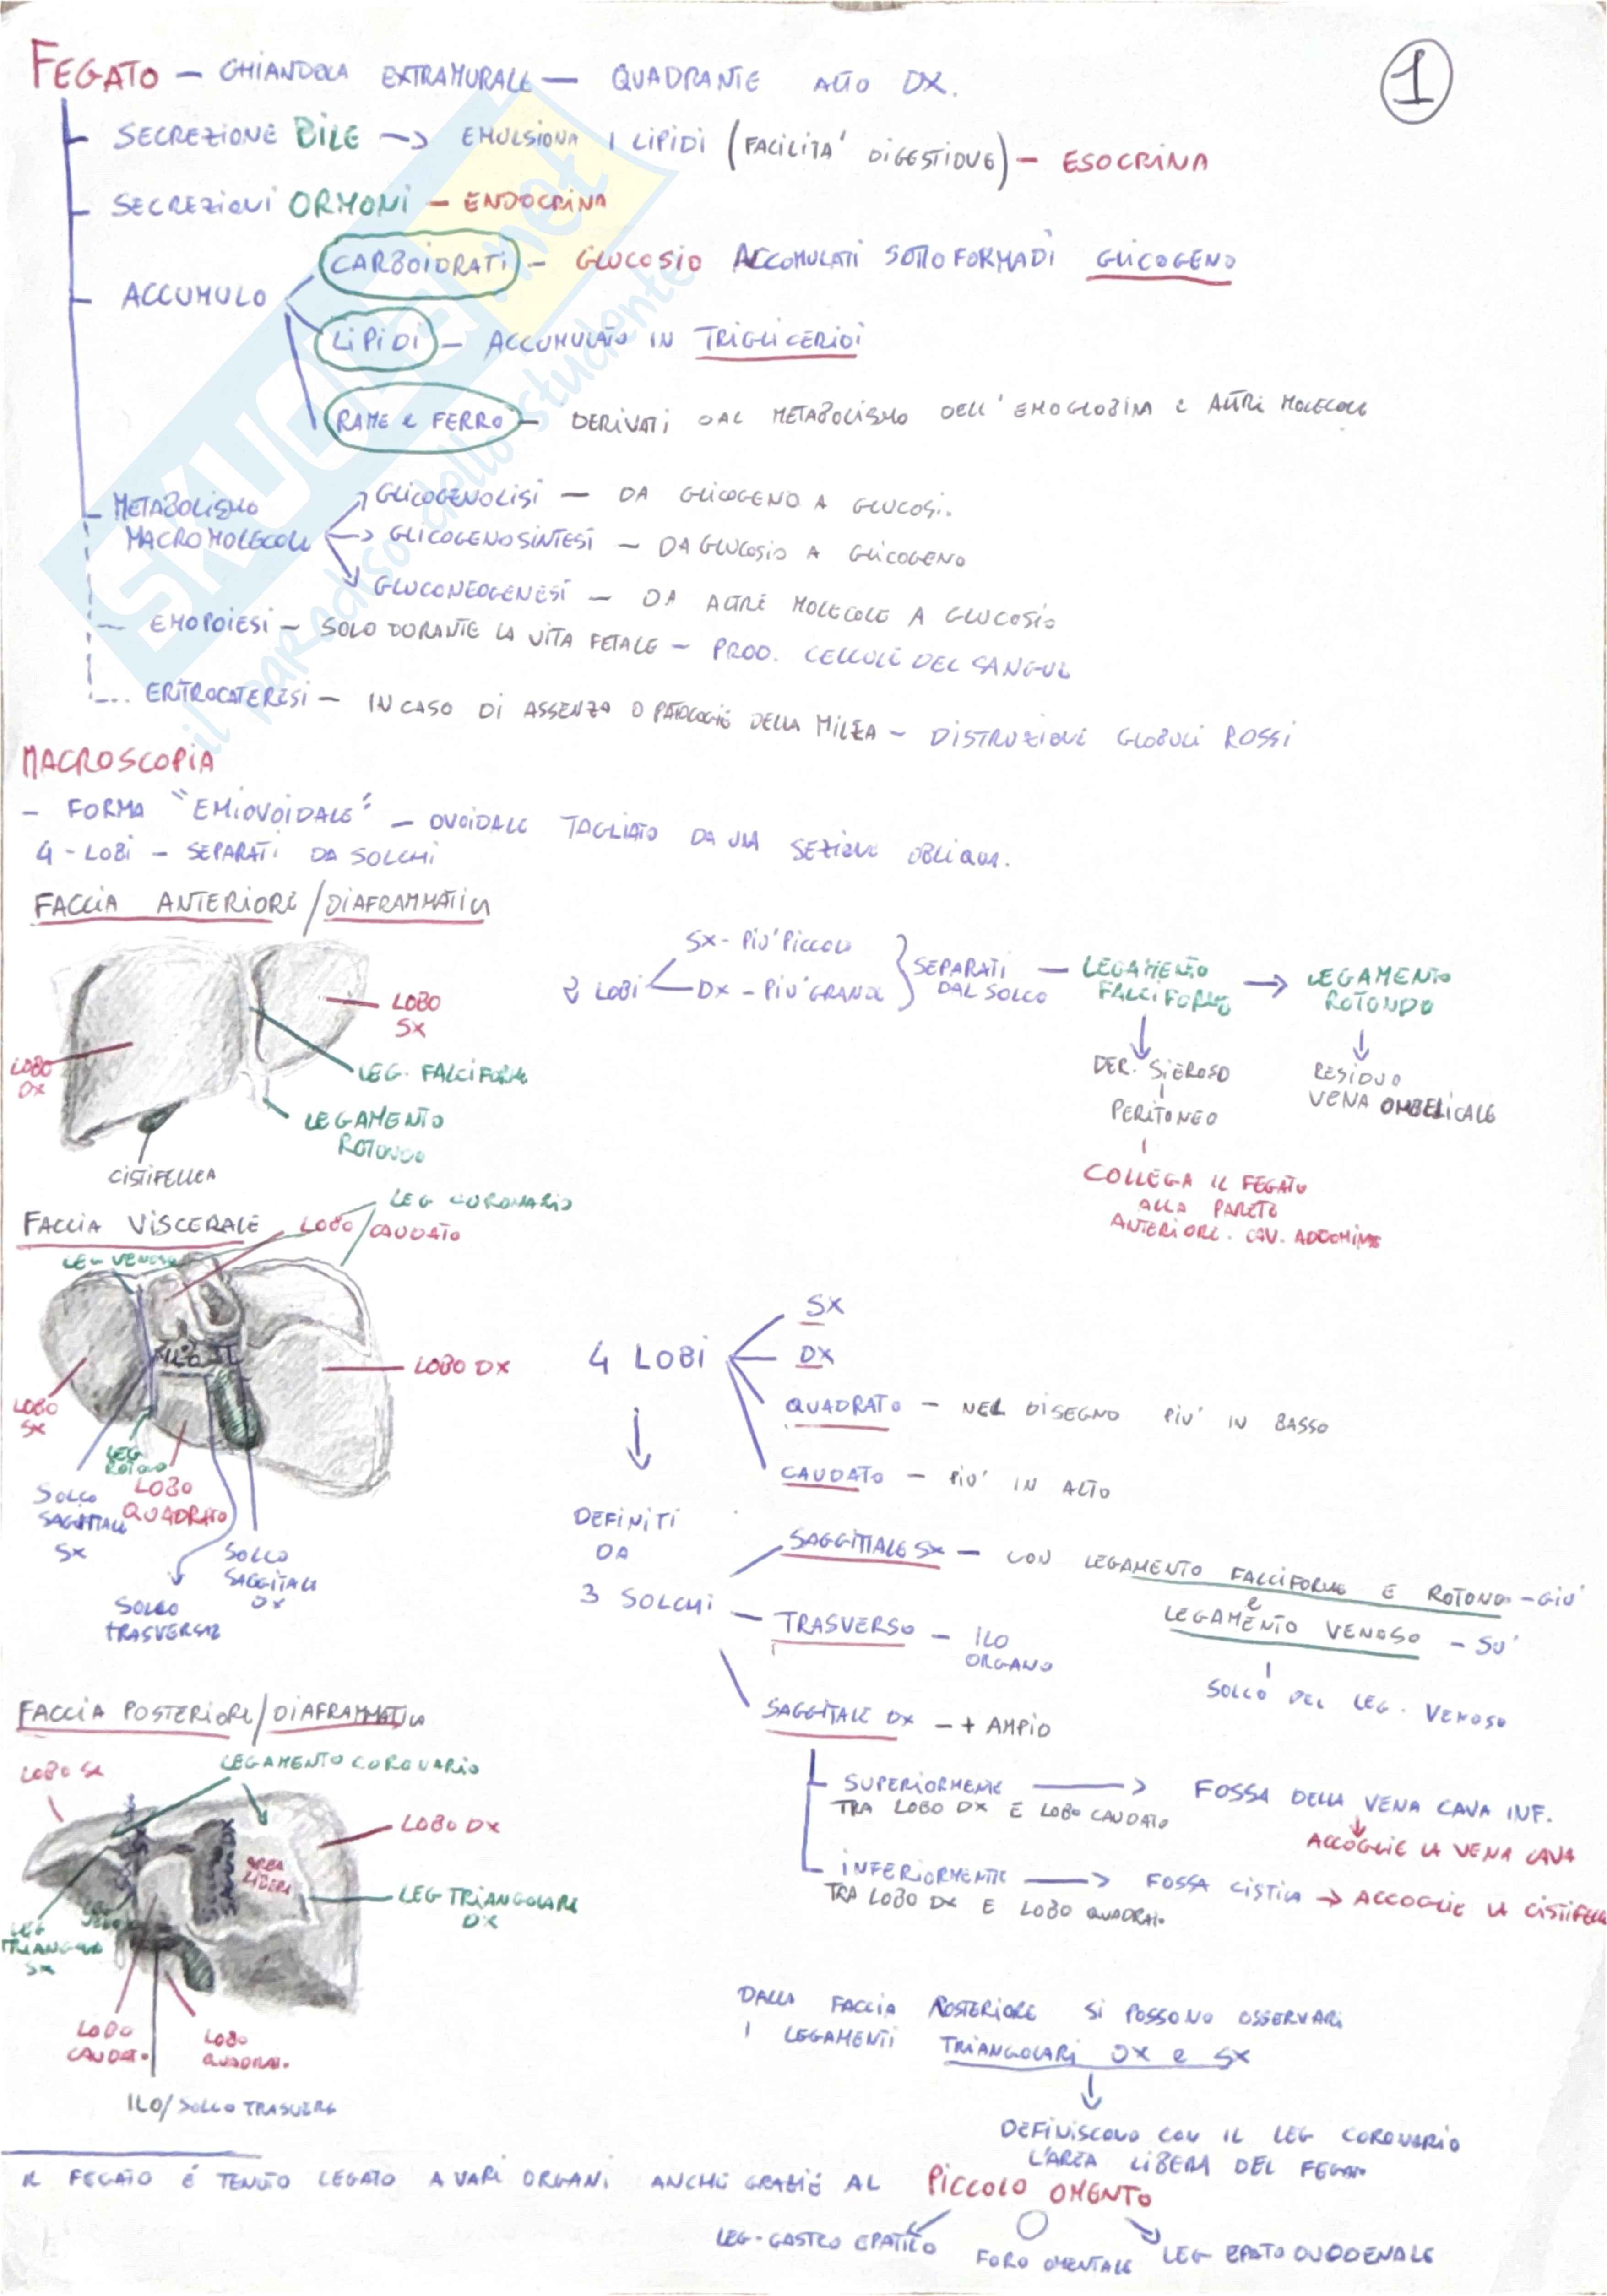 1
FEGATO – GHIANDOLA EXTRAMURALE – QUADRANTE ALTO DX.
SECREZIONE BILE → EMULSIONA I LIPIDI (FACILITA' DIGESTIONE) – ESOCRINA
SECREZIONI ORMONI – ENDOCRINA
ACCUMULO
CARBOIDRATI – GLUCOSIO ACCOMULATI SOTTO FORMA DI GLICOGENO
LIPIDI – ACCUMULATO IN TRIGLICERIDI
RAME E FERRO – DERIVATI DAL METABOLISMO DELL'EMOGLOBINA E ALTRE MOLECOLE
METABOLISMO
MACROMOLECOLE
GLICOGENOLISI – DA GLICOGENO A GLUCOSI.
→ GLICOGENOSINTESI – DA GLUCOSIO A GLICOGENO
GLUCONEOGENESI – DA ALTRE MOLECOLE A GLUCOSIO
EMOPOIESI – SOLO DURANTE LA VITA FETALE – PROD. CELLULE DEL SANGUE
ERITROCATERESI – IN CASO DI ASSENZA O PATOLOGIE DELLA MILZA – DISTRUZIONE GLOBULI ROSSI
SKUOLA.net
il paradiso dello studente
MACROSCOPIA
– FORMA "EMIOVOIDALE" – OVOIDALE TAGLIATO DA UNA SEZIONE OBLIQUA.
4 - LOBI – SEPARATI DA SOLCHI
FACCIA ANTERIORE / DIAFRAMMATICA
LOBO
SX
LOBO
DX
LEG. FALCIFORME
LEGAMENTO
ROTONDO
CISTIFELLEA
2 LOBI
SX - PIU' PICCOLO
DX - PIU' GRANDE
SEPARATI
DAL SOLCO
– LEGAMENTO
FALCIFORME
→ LEGAMENTO
ROTONDO
DER. SIEROSO
PERITONEO
COLLEGA IL FEGATO
ALLA PARETE
ANTERIORE. CAV. ADDOMINE
RESIDUO
VENA OMBELICALE
FACCIA VISCERALE
LEG CORONARIO
LOBO CAUDATO
LEG VENOSO
ILO
LOBO DX
LOBO
SX
LEG
ROTONDO
LOBO
QUADRATO
SOLCO
SAGITTALE
SX
SOLCO
TRASVERSALE
SOLCO
SAGGITALE
DX
4 LOBI
SX
DX
QUADRATO – NEL DISEGNO PIU' IN BASSO
CAUDATO – PIU' IN ALTO
DEFINITI
DA
3 SOLCHI
SAGGITTALE SX – CON LEGAMENTO FALCIFORME E ROTONDO – GIU'
E
LEGAMENTO VENOSO – SU'
SOLCO DEL LEG. VENOSO
– TRASVERSO – ILO
ORGANO
SAGGITALE DX – + AMPIO
SUPERIORMENTE → FOSSA DELLA VENA CAVA INF.
TRA LOBO DX E LOBO CAUDATO
ACCOGLIE LA VENA CAVA
INFERIORMENTE → FOSSA CISTICA → ACCOGLIE LA CISTIFELL
TRA LOBO DX E LOBO QUADRATO
FACCIA POSTERIORE / DIAFRAMMATICA
LOBO SX
LEGAMENTO CORONARIO
LOBO DX
AREA
LIBERA
LEG TRIANGOLARE
DX
LEG
TRIANGOLO
SX
LOBO
CAUDAT.
LOBO
QUADRAT.
ILO / SOLCO TRASVERS
DALLA FACCIA POSTERIORE SI POSSONO OSSERVARE
I LEGAMENTI TRIANGOLARI DX e SX
DEFINISCONO CON IL LEG CORONARIO
L'AREA LIBERA DEL FEGATO
IL FEGATO É TENUTO LEGATO A VARI ORGANI ANCHE GRAZIE AL PICCOLO OMENTO
LEG - GASTRO EPATICO
FORO OMENTALE
LEG EPATO DUODENALE